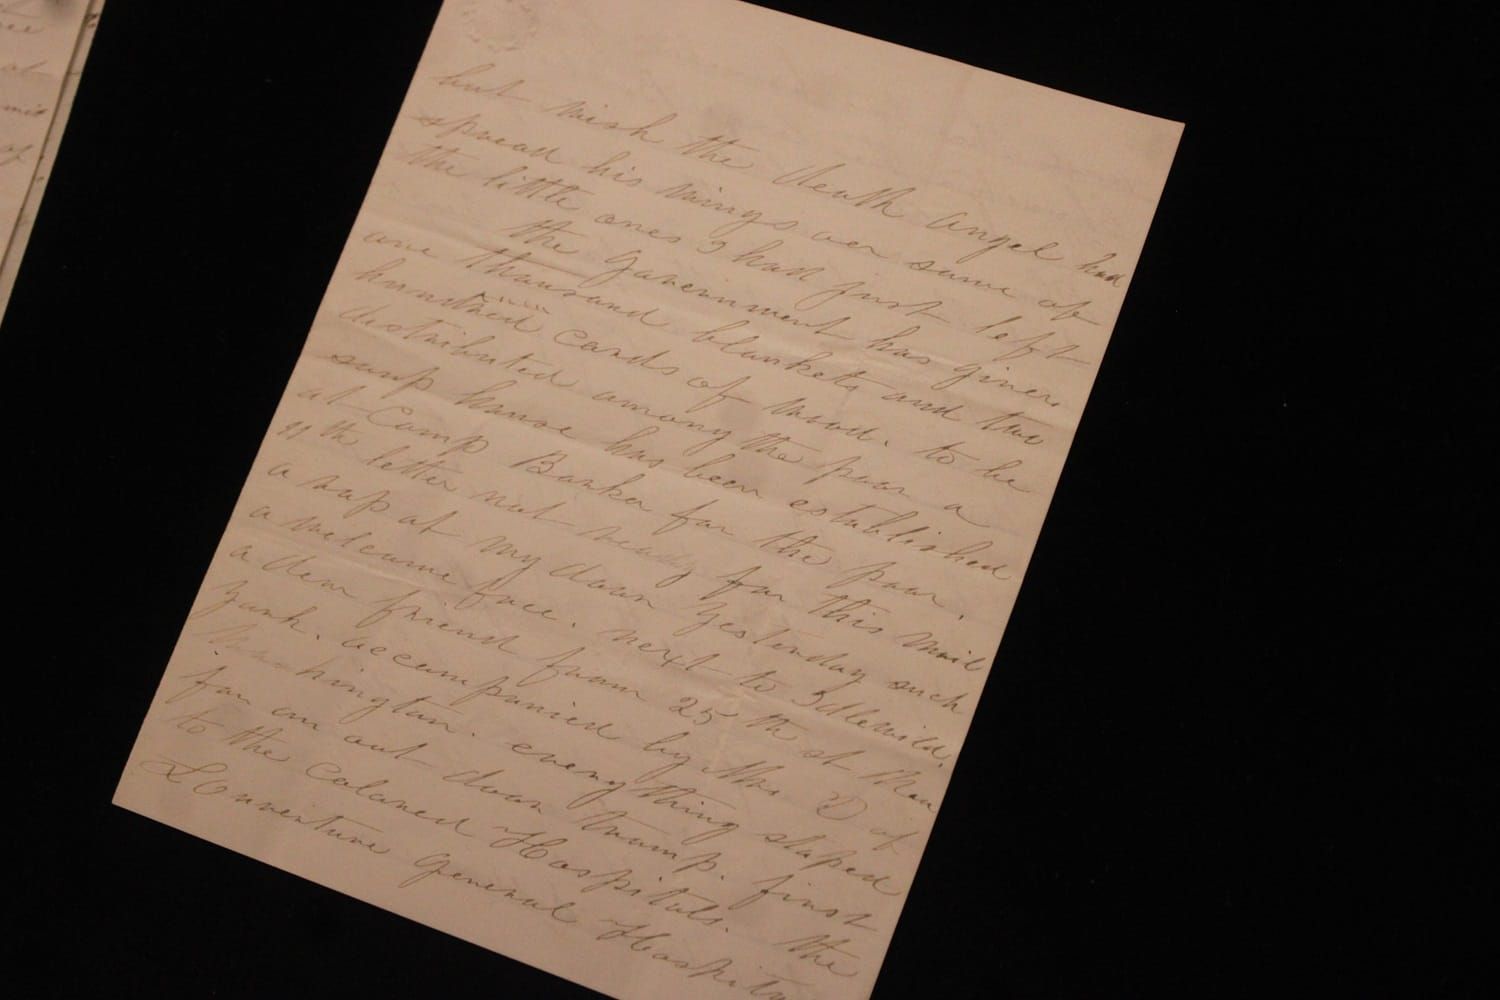 but wish the death angel had
spread his wings over some of
the little ones I had just left
the government has given
one thousand blankets and two
hundred cords of wood. to be
distributed among the poor a
soup house has been established
at Camp Barker for the poor.
11 th letter not ready for this mail
a rap at my door yesterday such
a welcome face. next to Idlewild.
a dem friend from 25 th st New
york. accompanied by Mrs D of
Washington. every thing shaped
for an out door tramp. first
to the colored Hospitals. the
L Ouverture General Hospital